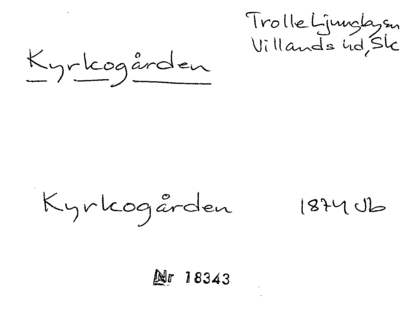 Trolle Ljungby sn
Villands hd, Sk
Kyrkogården
Kyrkogården 1874 Jb
Nr 18343